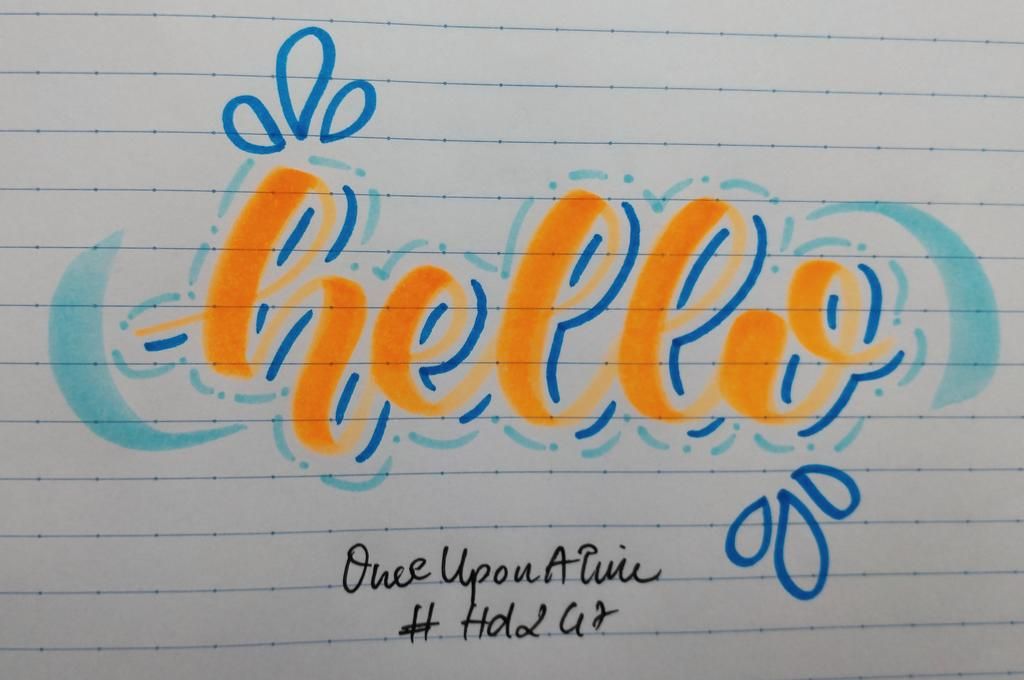 hello
Once Upon A Time
# Hd2G7